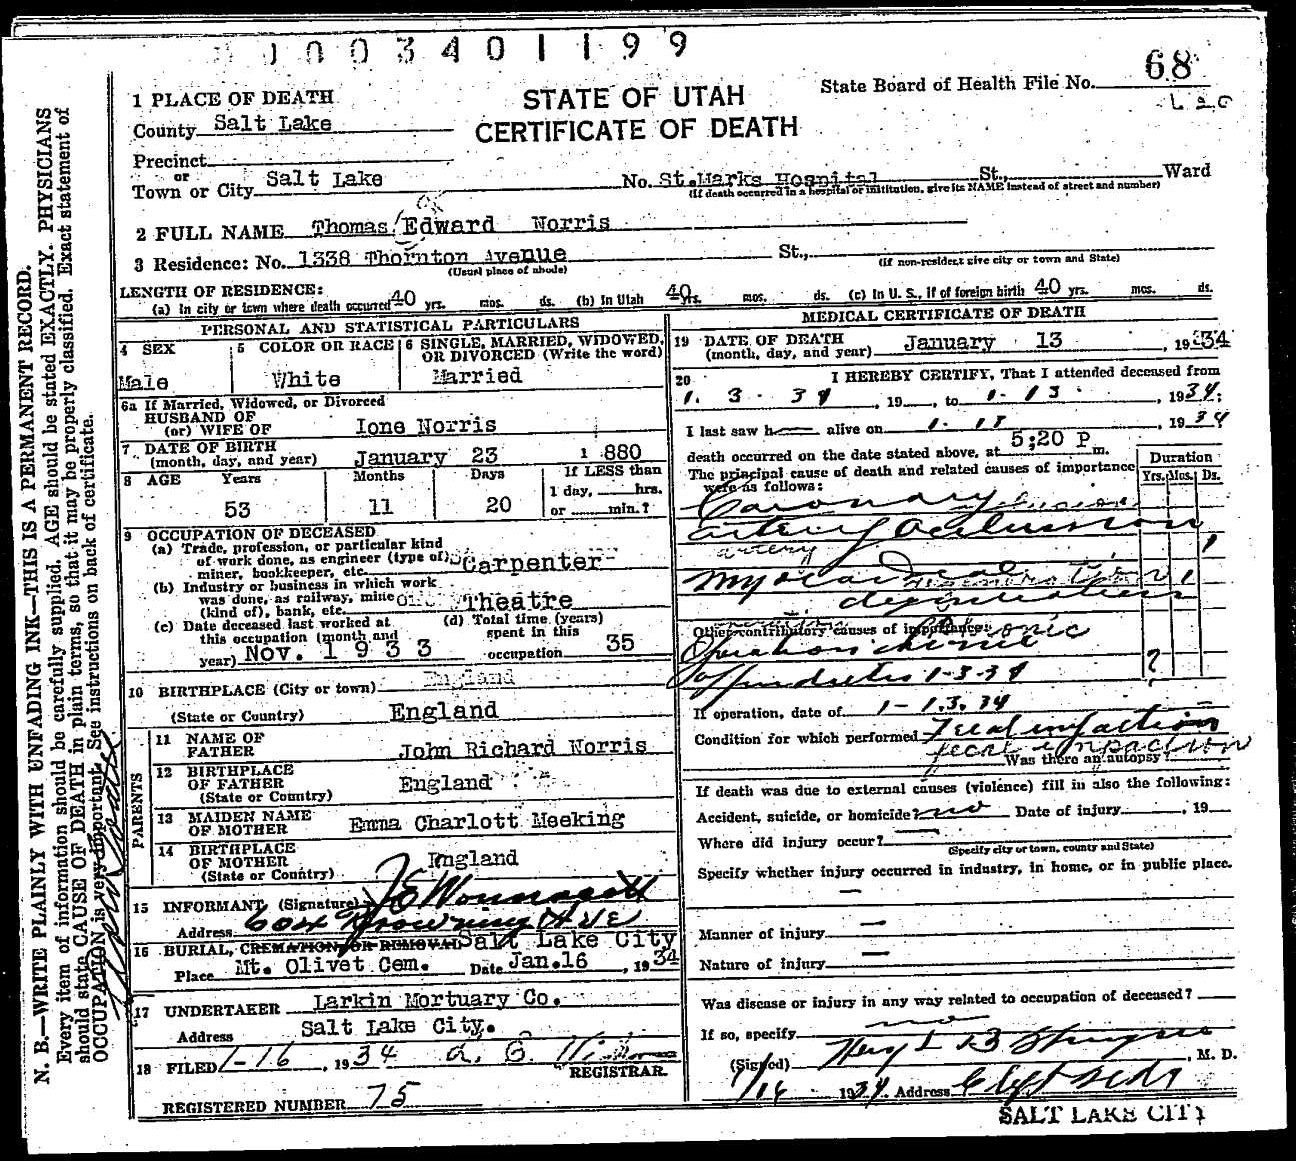 003401199
68
State Board of Health File No.
STATE OF UTAH
CERTIFICATE OF DEATH
1 PLACE OF DEATH
County Salt Lake
Precinct
or
Town or City Salt Lake No. St. Marks Hospital St., Ward
(If death occurred in a hospital or institution, give its NAME instead of street and number)
2 FULL NAME Thomas Edward Norris
3 Residence: No. 1338 Thornton Avenue St.,
(Usual place of abode) (If non-resident give city or town and State)
LENGTH OF RESIDENCE:
(a) In city or town where death occurred 40 yrs. mos. ds. (b) In Utah 40 yrs. mos. ds. (c) In U. S., if of foreign birth 40 yrs. mos. ds.
PERSONAL AND STATISTICAL PARTICULARS
4 SEX
Male
5 COLOR OR RACE
White
6 SINGLE, MARRIED, WIDOWED, OR DIVORCED (Write the word)
Married
6a If Married, Widowed, or Divorced
HUSBAND OF
(or) WIFE OF Ione Norris
7 DATE OF BIRTH
(month, day, and year) January 23 1880
8 AGE Years Months Days If LESS than
1 day, hrs.
or min.?
53 11 20
9 OCCUPATION OF DECEASED
(a) Trade, profession, or particular kind
of work done, as engineer (type of)
miner, bookkeeper, etc. Carpenter
(b) Industry or business in which work
was done, as railway, mine
(kind of), bank, etc. Theatre
(c) Date deceased last worked at
this occupation (month and
year) Nov. 1933
(d) Total time (years)
spent in this
occupation 35
10 BIRTHPLACE (City or town) England
(State or Country) England
PARENTS
11 NAME OF
FATHER John Richard Norris
12 BIRTHPLACE
OF FATHER England
(State or Country)
13 MAIDEN NAME
OF MOTHER Emma Charlott Meeking
14 BIRTHPLACE
OF MOTHER England
(State or Country)
15 INFORMANT (Signature)
Address 604 Browning Ave
16 BURIAL, CREMATION OR REMOVAL Salt Lake City
Place Mt. Olivet Cem. Date Jan.16, 1934
17 UNDERTAKER Larkin Mortuary Co.
Address Salt Lake City.
18 FILED 1-16, 1934
REGISTRAR.
REGISTERED NUMBER 75
MEDICAL CERTIFICATE OF DEATH
19 DATE OF DEATH
(month, day, and year) January 13, 1934
20 I HEREBY CERTIFY, That I attended deceased from
1. 3. 34, 19, to 1-13, 1934;
I last saw h alive on 1-13, 1934
death occurred on the date stated above, at 5:20 P m.
The principal cause of death and related causes of importance
were as follows:
Duration
Yrs. Mos. Ds.
Coronary occlusion
artery occlusion
artery
1
Myocardial degeneration 1
degeneration
Other contributory causes of importance: Chronic
Operation chronic
appendicitis 1-3-34 ?
If operation, date of 1-1.3.34
Condition for which performed Fecal impaction
fecal impaction
Was there an autopsy?
If death was due to external causes (violence) fill in also the following:
Accident, suicide, or homicide? no Date of injury, 19
Where did injury occur?
(Specify city or town, county and State)
Specify whether injury occurred in industry, in home, or in public place.
Manner of injury
Nature of injury
Was disease or injury in any way related to occupation of deceased?
If so, specify no
(Signed), M. D.
1/14 1934. Address Clift Bldg
SALT LAKE CITY
N. B.—WRITE PLAINLY WITH UNFADING INK—THIS IS A PERMANENT RECORD.
Every item of information should be carefully supplied. AGE should be stated EXACTLY. PHYSICIANS
should state CAUSE OF DEATH in plain terms, so that it may be properly classified. Exact statement of
OCCUPATION is very important. See instructions on back of certificate.